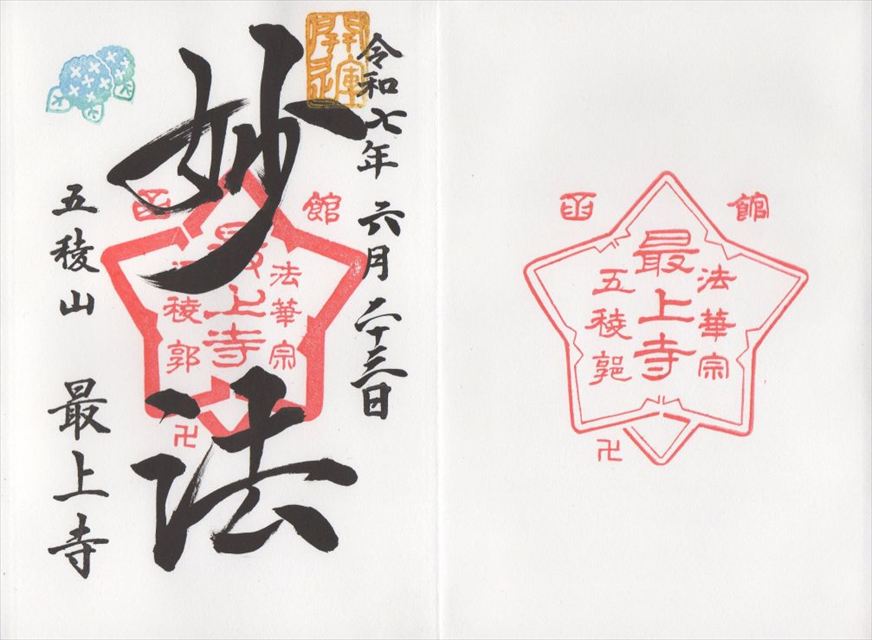 開運
令和七年 六月二十三日
妙法
函館
法華宗
最上寺
五稜郭
卍
五稜山 最上寺
函館
法華宗
最上寺
五稜郭
卍